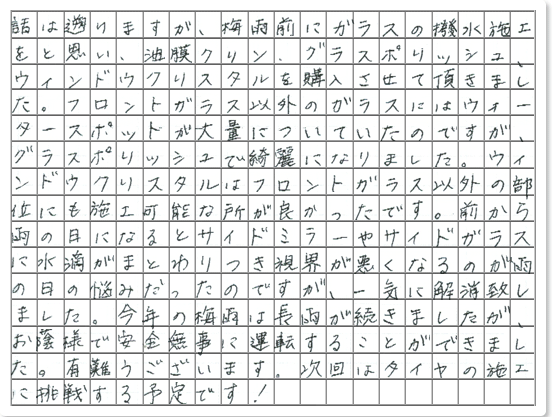 話は遡りますが、梅雨前にガラスの撥水施工
をと思い、油膜クリン グラスポリッシュ、
ウィンドウクリスタルを購入させて頂きまし
た。フロントガラス以外のガラスにはウォー
タースポットが大量についていたのですが、
グラスポリッシュで綺麗になりました。ウィ
ンドウクリスタルはフロントガラス以外の部
位にも施工可能な所が良かったです。前から
雨の日になるとサイドミラーやサイドガラス
に水滴がまとわりつき視界が悪くなるのが雨
の日の悩みだったのですが、一気に解消致し
ました。今年の梅雨は長雨が続きましたが、
お蔭様で安全無事に運転することができまし
た。有難うございます。次回はタイヤの施工
に挑戦する予定です!